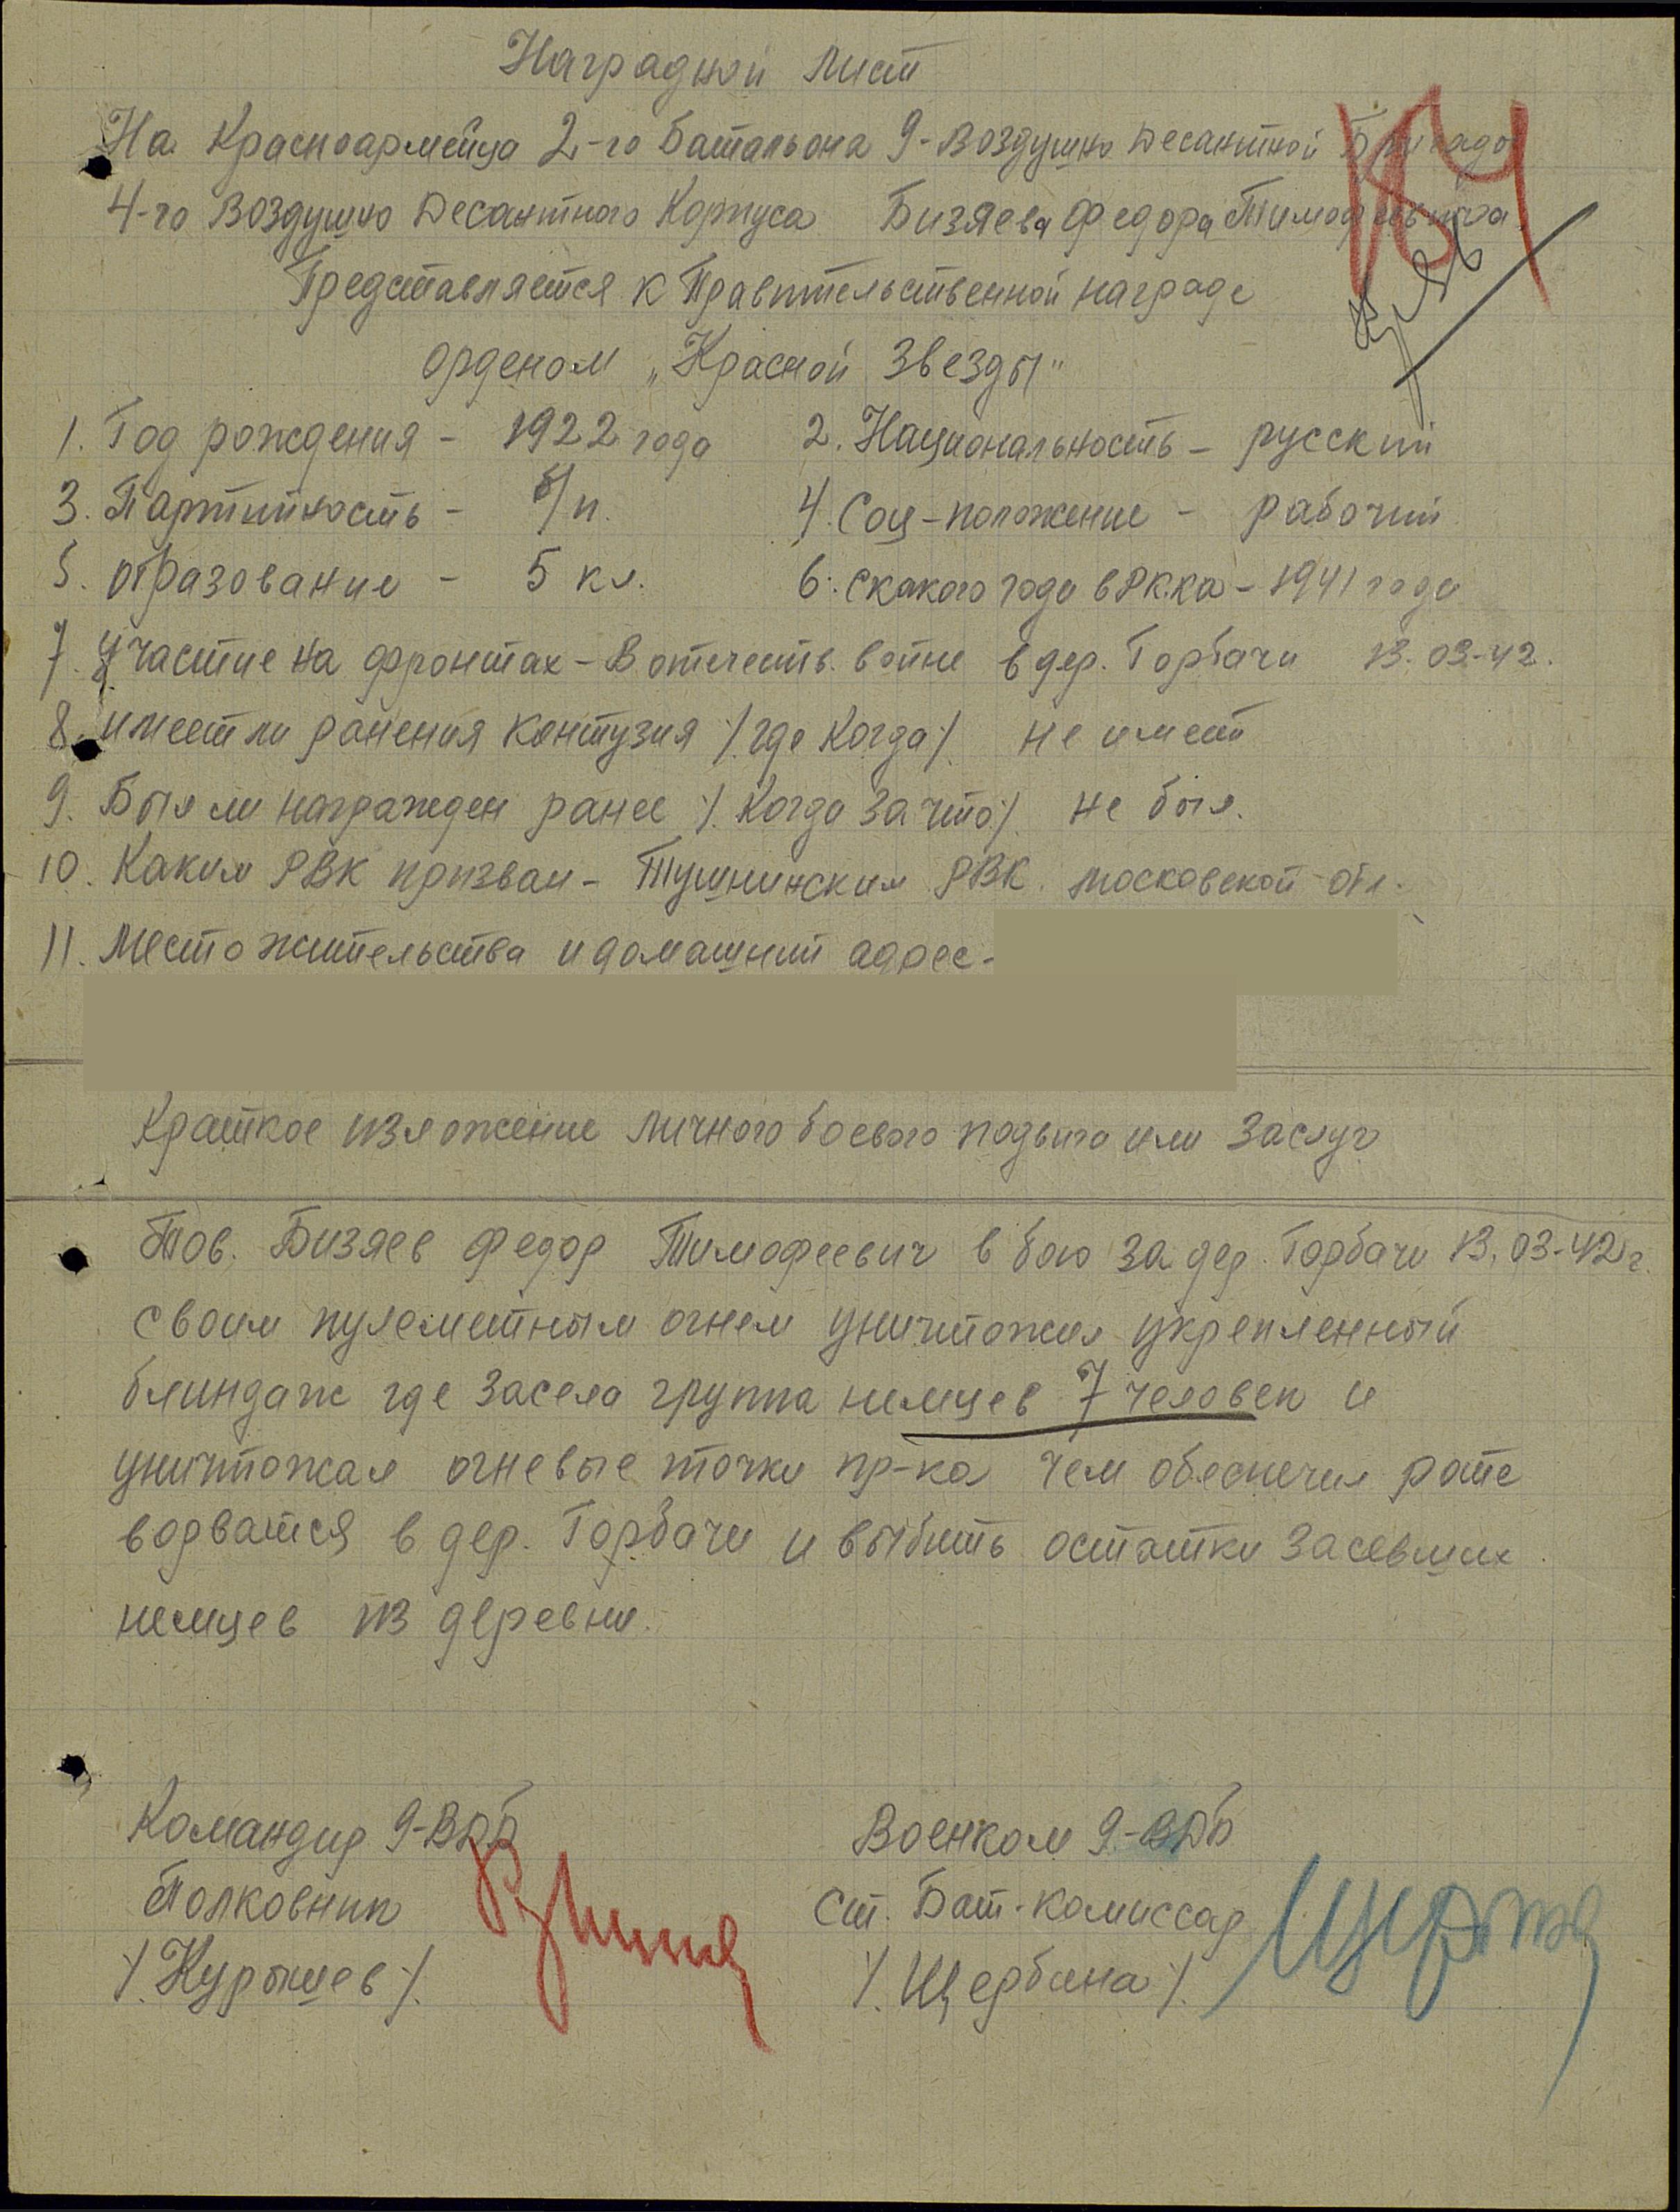 Наградной лист
На Красноармейца 2-го Батальона 9-Воздушно Десантной Бригады
4-го Воздушно Десантного Корпуса Бизяева Федора Тимофеевича
Представляется к Правительственной награде
орденом „Красной Звезды"
1. Год рождения - 1922 года 2. Национальность - русский
3. Партийность - б/п. 4. Соц-положение - рабочий
5. образование - 5 кл. 6. с какого года в РККА - 1941 года
7. Участие на фронтах - В отечеств. войне в дер. Горбачи 13.03-42.
8. имеет ли ранения контузия /. где когда /. не имеет
9. Был ли награжден ранее /. Когда за что /. не был.
10. Каким РВК призван - Тушинским РВК. Московской обл.
11. Место жительства и домашний адрес -
Краткое изложение личного боевого подвига или заслуг
Тов. Бизяев Федор Тимофеевич в бою за дер. Горбачи 13.03-42г.
своим пулеметным огнем уничтожил укрепленный
блиндаж где засела группа немцев 7 человек и
уничтожал огневые точки пр-ка чем обеспечил роте
ворватся в дер. Горбачи и выбить остатки засевших
немцев из деревни.
Командир 9-ВДБ Военком 9-ВДБ
Полковник Ст. Бат-комиссар
/. Курышев /. /. Щербина /.